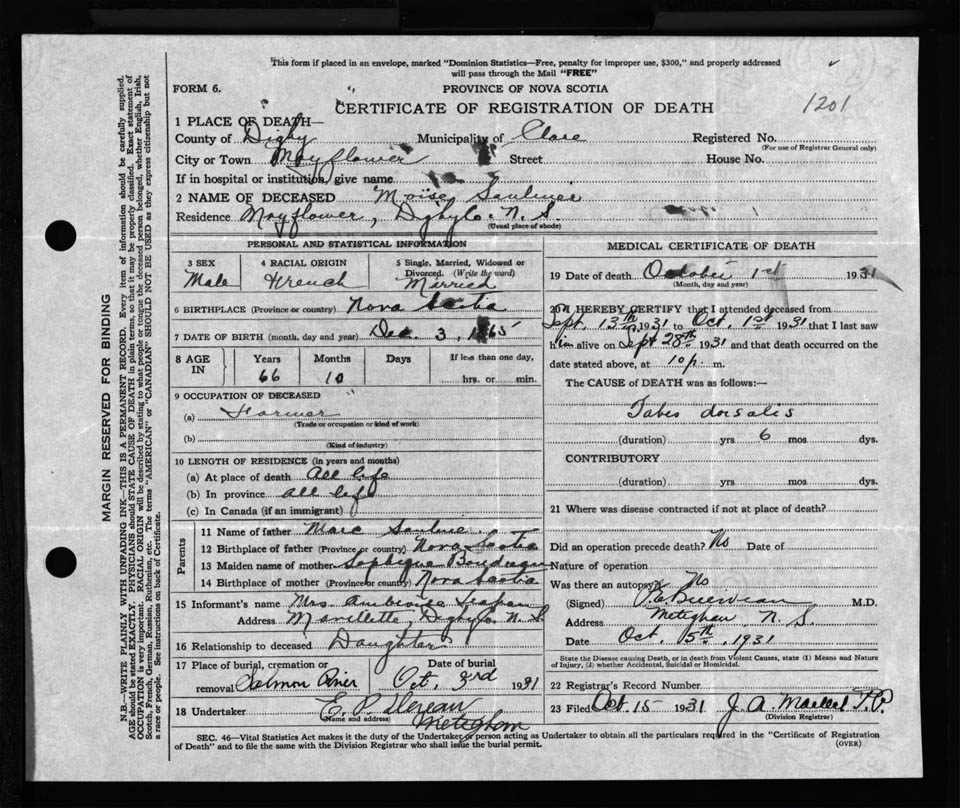 This form if placed in an envelope, marked "Dominion Statistics—Free, penalty for improper use, $300," and properly addressed
will pass through the Mail "FREE"
FORM 6.
PROVINCE OF NOVA SCOTIA
CERTIFICATE OF REGISTRATION OF DEATH
1201
1 PLACE OF DEATH—
County of Digby Municipality of Clare Registered No.
(For use of Registrar General only)
City or Town Mayflower Street House No.
If in hospital or institution, give name
2 NAME OF DECEASED Moise
Residence Mayflower, Digby Co. N. S.
(Usual place of abode)
PERSONAL AND STATISTICAL INFORMATION
3 SEX
Male
4 RACIAL ORIGIN
French
5 Single, Married, Widowed or
Divorced. (Write the word)
Married
6 BIRTHPLACE (Province or country) Nova Scotia
7 DATE OF BIRTH (month, day and year) Dec. 3, 1865
8 AGE IN
Years Months Days If less than one day,
66 10 hrs. or min.
9 OCCUPATION OF DECEASED
(a) Farmer
(Trade or occupation or kind of work)
(b)
(Kind of industry)
10 LENGTH OF RESIDENCE (in years and months)
(a) At place of death All life
(b) In province All life
(c) In Canada (if an immigrant)
Parents
11 Name of father Marc
12 Birthplace of father (Province or country) Nova Scotia
13 Maiden name of mother
14 Birthplace of mother (Province or country) Nova Scotia
15 Informant's name Mrs. Ambroise
Address Mavillette, Digby Co. N. S.
16 Relationship to deceased Daughter
17 Place of burial, cremation or
removal Salmon River
Date of burial
Oct. 3rd 1931
18 Undertaker E. P.
(Name and address) Meteghan
MEDICAL CERTIFICATE OF DEATH
19 Date of death October 1st 1931
(Month, day and year)
20 I HEREBY CERTIFY that I attended deceased from
Sept. 13th 1931 to Oct. 1st 1931 that I last saw
him alive on Sept 28th 1931 and that death occurred on
date stated above, at 10 p. m.
The CAUSE of DEATH was as follows:—
Tabes dorsalis
(duration) yrs 6 mos dys.
CONTRIBUTORY
(duration) yrs. mos dys.
21 Where was disease contracted if not at place of death?
Did an operation precede death? No Date of
Nature of operation
Was there an autopsy? No
(Signed) M.D.
Address Meteghan N. S.
Date Oct. 5th, 1931
State the Disease causing Death, or in death from Violent Causes, state (1) Means and Nature
of Injury, (2) whether Accidental, Suicidal or Homicidal.
22 Registrar's Record Number
23 Filed Oct 15 1931 J. A. Maillet J.P.
(Division Registrar)
SEC. 46—Vital Statistics Act makes it the duty of the Undertaker or person acting as Undertaker to obtain all the particulars required in the "Certificate of Registration
of Death" and to file the same with the Division Registrar who shall issue the burial permit.
(OVER)
MARGIN RESERVED FOR BINDING
N.B.—WRITE PLAINLY WITH UNFADING INK—THIS IS A PERMANENT RECORD. Every item of information should be carefully supplied.
AGE should be stated EXACTLY. PHYSICIANS should STATE CAUSE OF DEATH in plain terms, so that it may be properly classified. Exact statement of
OCCUPATION is very important. RACIAL ORIGIN will be described by stating to what people or tongue the deceased person belonged, whether English, Irish,
Scotch, French, German, Russian, Ruthenian, etc. The terms "AMERICAN" or "CANADIAN" SHOULD NOT BE USED as they express citizenship but not
a race or people. See instructions on back of Certificate.